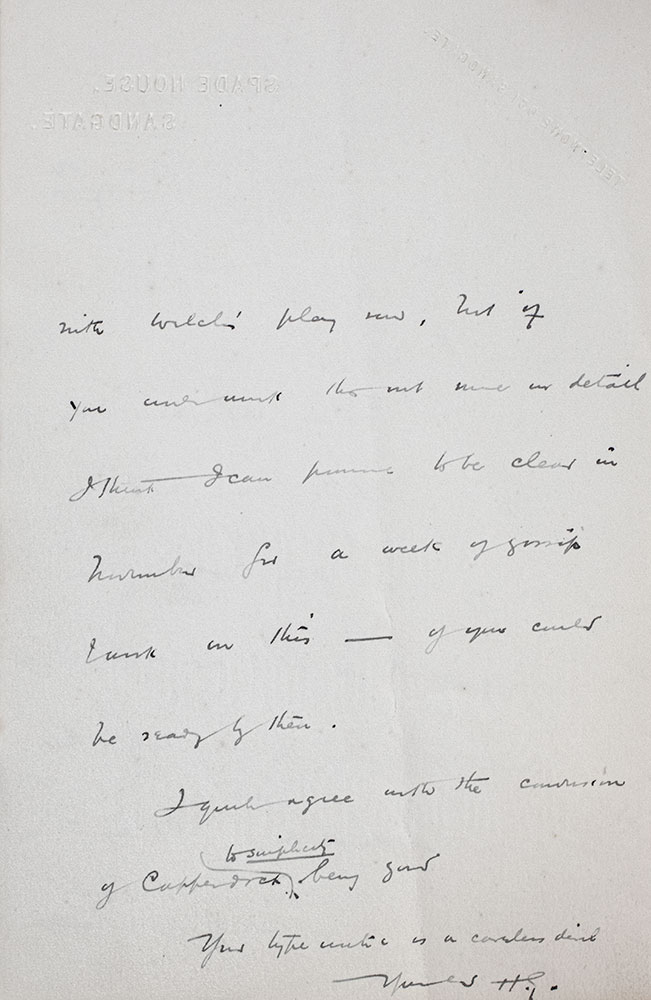 SPADE HOUSE,
SANDGATE.
TELEPHONE SANDGATE.
with Welch's play now, but if
you can work this out more in detail
I think I can promise to be clear in
November for a week of gossip
& work on this — if you could
be ready by then.
I quite agree with the conversion
to simplicity
of Capperdock being good
Your typewriter is a careless devil
Yours H.G.